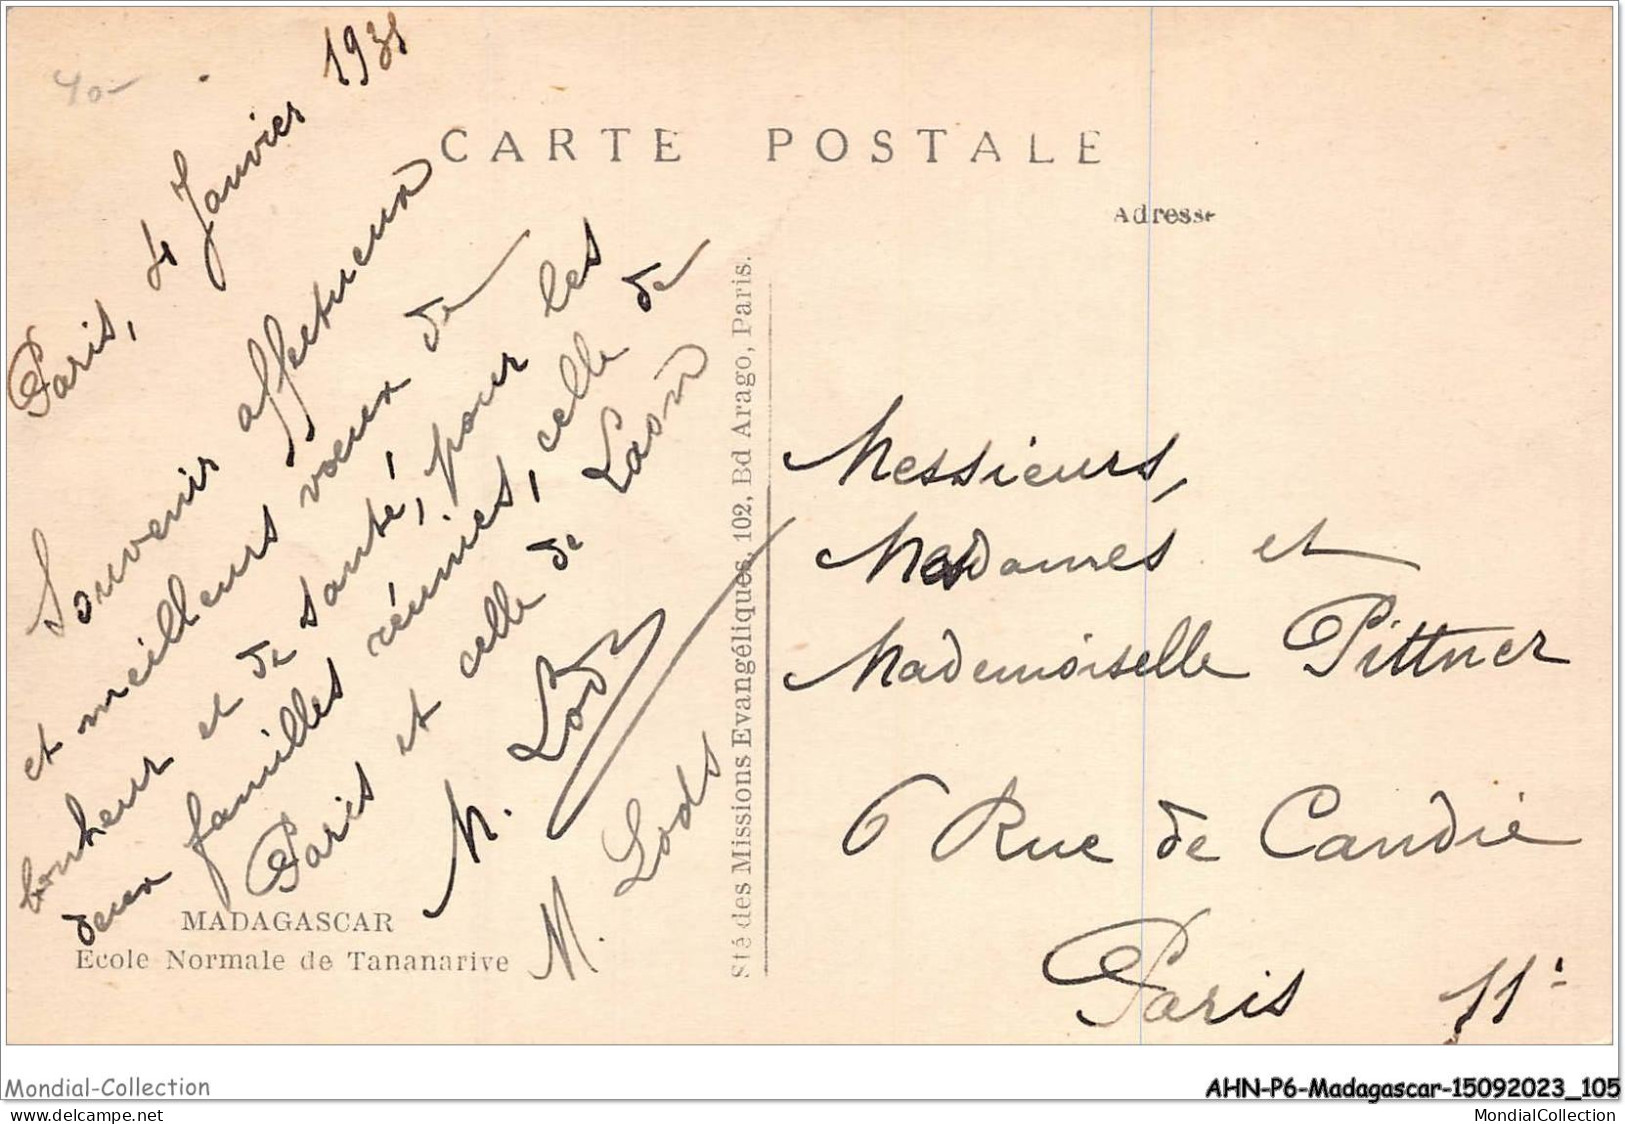 40-
CARTE POSTALE
Adresse
Paris, 4 Janvier 1931
Souvenir affectueux
et meilleurs voeux de
bonheur et de santé, pour les
deux familles réunies, celle de
Paris et celle de Laon
M. Lods
M. Lods
MADAGASCAR
Ecole Normale de Tananarive
Sté des Missions Evangéliques, 102, Bd Arago, Paris.
Messieurs,
Mesdames et
Mademoiselle Pittner
6 Rue de Candie
Paris 11e
Mondial-Collection
AHN-P6-Madagascar-15092023_105
www.delcampe.net
MondialCollection